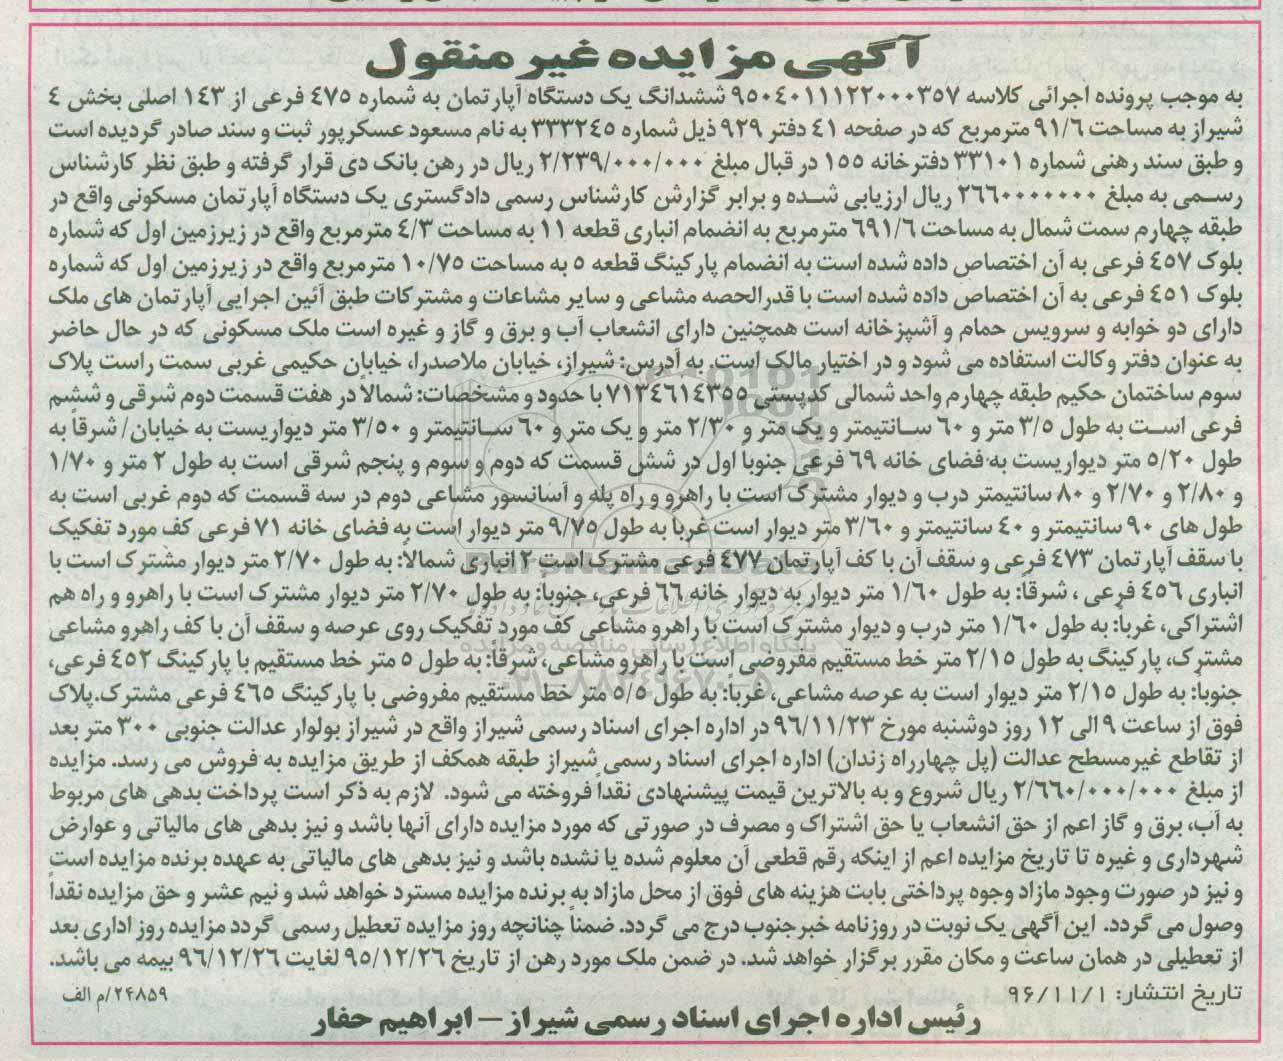 آگهی مزایده غیر منقول
به موجب پرونده اجرائی کلاسه ۹۵۰۴۰۱۱۱۲۲۰۰۰۳۵۷ ششدانگ یک دستگاه آپارتمان به شماره ۴۷۵ فرعی از ۱۴۳ اصلی بخش ۴
شیراز به مساحت ۹۱/۶ مترمربع که در صفحه ۴۱ دفتر ۹۲۹ ذیل شماره ۳۳۳۲۴۵ به نام مسعود عسکرپور ثبت و سند صادر گردیده است
و طبق سند رهنی شماره ۳۳۱۰۱ دفترخانه ۱۵۵ در قبال مبلغ ۲/۲۳۹/۰۰۰/۰۰۰ ریال در رهن بانک دی قرار گرفته و طبق نظر کارشناس
رسمی به مبلغ ۲۶۶۰۰۰۰۰۰۰ ریال ارزیابی شده و برابر گزارش کارشناس رسمی دادگستری یک دستگاه آپارتمان مسکونی واقع در
طبقه چهارم سمت شمال به مساحت ۶۹۱/۶ مترمربع به انضمام انباری قطعه ۱۱ به مساحت ۴/۳ مترمربع واقع در زیرزمین اول که شماره
بلوک ۴۵۷ فرعی به آن اختصاص داده شده است به انضمام پارکینگ قطعه ۵ به مساحت ۱۰/۷۵ مترمربع واقع در زیرزمین اول که شماره
بلوک ۴۵۱ فرعی به آن اختصاص داده شده است با قدرالحصه مشاعی و سایر مشاعات و مشترکات طبق آئین اجرایی آپارتمان های ملک
دارای دو خوابه و سرویس حمام و آشپزخانه است همچنین دارای انشعاب آب و برق و گاز و غیره است ملک مسکونی که در حال حاضر
به عنوان دفتر وکالت استفاده می شود و در اختیار مالک است. به آدرس: شیراز، خیابان ملاصدرا، خیابان حکیمی غربی سمت راست پلاک
سوم ساختمان حکیم طبقه چهارم واحد شمالی کدپستی ۷۱۳۴۶۱۴۳۵۵ با حدود و مشخصات: شمالا در هفت قسمت دوم شرقی و ششم
فرعی است به طول ۳/۵ متر و ۶۰ سانتیمتر و یک متر و ۲/۳۰ متر و یک متر و ۶۰ سانتیمتر و ۳/۵۰ متر دیواریست به خیابان/ شرقاً به
طول ۵/۲۰ متر دیواریست به فضای خانه ۶۹ فرعی جنوبا اول در شش قسمت که دوم و سوم و پنجم شرقی است به طول ۲ متر و ۱/۷۰
و ۲/۸۰ و ۲/۷۰ و ۸۰ سانتیمتر درب و دیوار مشترک است با راهرو و راه پله و آسانسور مشاعی دوم در سه قسمت که دوم غربی است به
طول های ۹۰ سانتیمتر و ۴۰ سانتیمتر و ۳/۶۰ متر دیوار است غرباً به طول ۹/۷۵ متر دیوار است به فضای خانه ۷۱ فرعی کف مورد تفکیک
با سقف آپارتمان ۴۷۳ فرعی و سقف آن با کف آپارتمان ۴۷۷ فرعی مشترک است ۲ انباری شمالاً: به طول ۲/۷۰ متر دیوار مشترک است با
انباری ۴۵۶ فرعی ، شرقاً: به طول ۱/۶۰ متر دیوار به دیوار خانه ۶۶ فرعی، جنوبا: به طول ۲/۷۰ متر دیوار مشترک است با راهرو و راه هم
اشتراکی، غرباً: به طول ۱/۶۰ متر درب و دیوار مشترک است با راهرو مشاعی کف مورد تفکیک روی عرصه و سقف آن با کف راهرو مشاعی
مشترک، پارکینگ به طول ۲/۱۵ متر خط مستقیم مفروضی است با راهرو مشاعی، شرقاً: به طول ۵ متر خط مستقیم با پارکینگ ۴۵۲ فرعی،
جنوباً: به طول ۲/۱۵ متر دیوار است به عرصه مشاعی، غربا: به طول ۵/۵ متر خط مستقیم مفروضی با پارکینگ ۴۶۵ فرعی مشترک.پلاک
فوق از ساعت ۹ الی ۱۲ روز دوشنبه مورخ ۹۶/۱۱/۲۳ در اداره اجرای اسناد رسمی شیراز واقع در شیراز بولوار عدالت جنوبی ۳۰۰ متر بعد
از تقاطع غیرمسطح عدالت (پل چهارراه زندان) اداره اجرای اسناد رسمی شیراز طبقه همکف از طریق مزایده به فروش می رسد. مزایده
از مبلغ ۲/۶۶۰/۰۰۰/۰۰۰ ریال شروع و به بالاترین قیمت پیشنهادی نقداً فروخته می شود. لازم به ذکر است پرداخت بدهی های مربوط
به آب، برق و گاز اعم از حق انشعاب یا حق اشتراک و مصرف در صورتی که مورد مزایده دارای آنها باشد و نیز بدهی های مالیاتی و عوارض
شهرداری و غیره تا تاریخ مزایده اعم از اینکه رقم قطعی آن معلوم شده یا نشده باشد و نیز بدهی های مالیاتی به عهده برنده مزایده است
و نیز در صورت وجود مازاد وجوه پرداختی بابت هزینه های فوق از محل مازاد به برنده مزایده مسترد خواهد شد و نیم عشر و حق مزایده نقداً
وصول می گردد. این آگهی یک نوبت در روزنامه خبرجنوب درج می گردد. ضمناً چنانچه روز مزایده تعطیل رسمی گردد مزایده روز اداری بعد
از تعطیلی در همان ساعت و مکان مقرر برگزار خواهد شد. در ضمن ملک مورد رهن از تاریخ ۹۵/۱۲/۲۶ لغایت ۹۶/۱۲/۲۶ بیمه می باشد.
تاریخ انتشار: ۹۶/۱۱/۱
۲۴۸۵۹/م الف
رئیس اداره اجرای اسناد رسمی شیراز – ابراهیم حفار